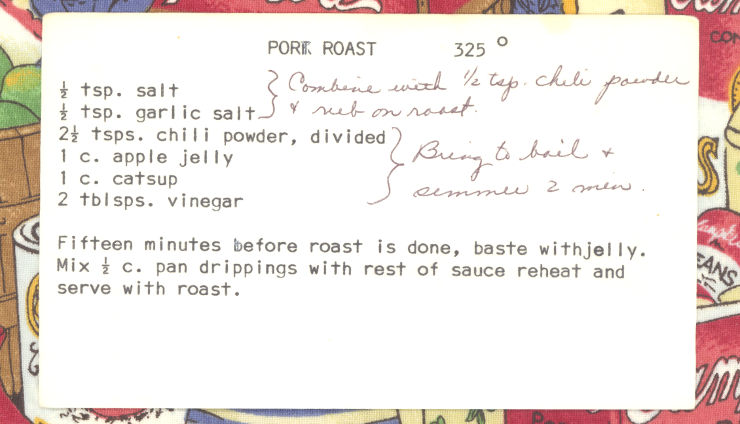 PORK ROAST 325°
½ tsp. salt
Combine with ½ tsp. chili powder
½ tsp. garlic salt
& rub on roast.
2½ tsps. chili powder, divided
1 c. apple jelly
Bring to boil +
1 c. catsup
simmer 2 min.
2 tblsps. vinegar
Fifteen minutes before roast is done, baste withjelly.
Mix ½ c. pan drippings with rest of sauce reheat and
serve with roast.
EANS